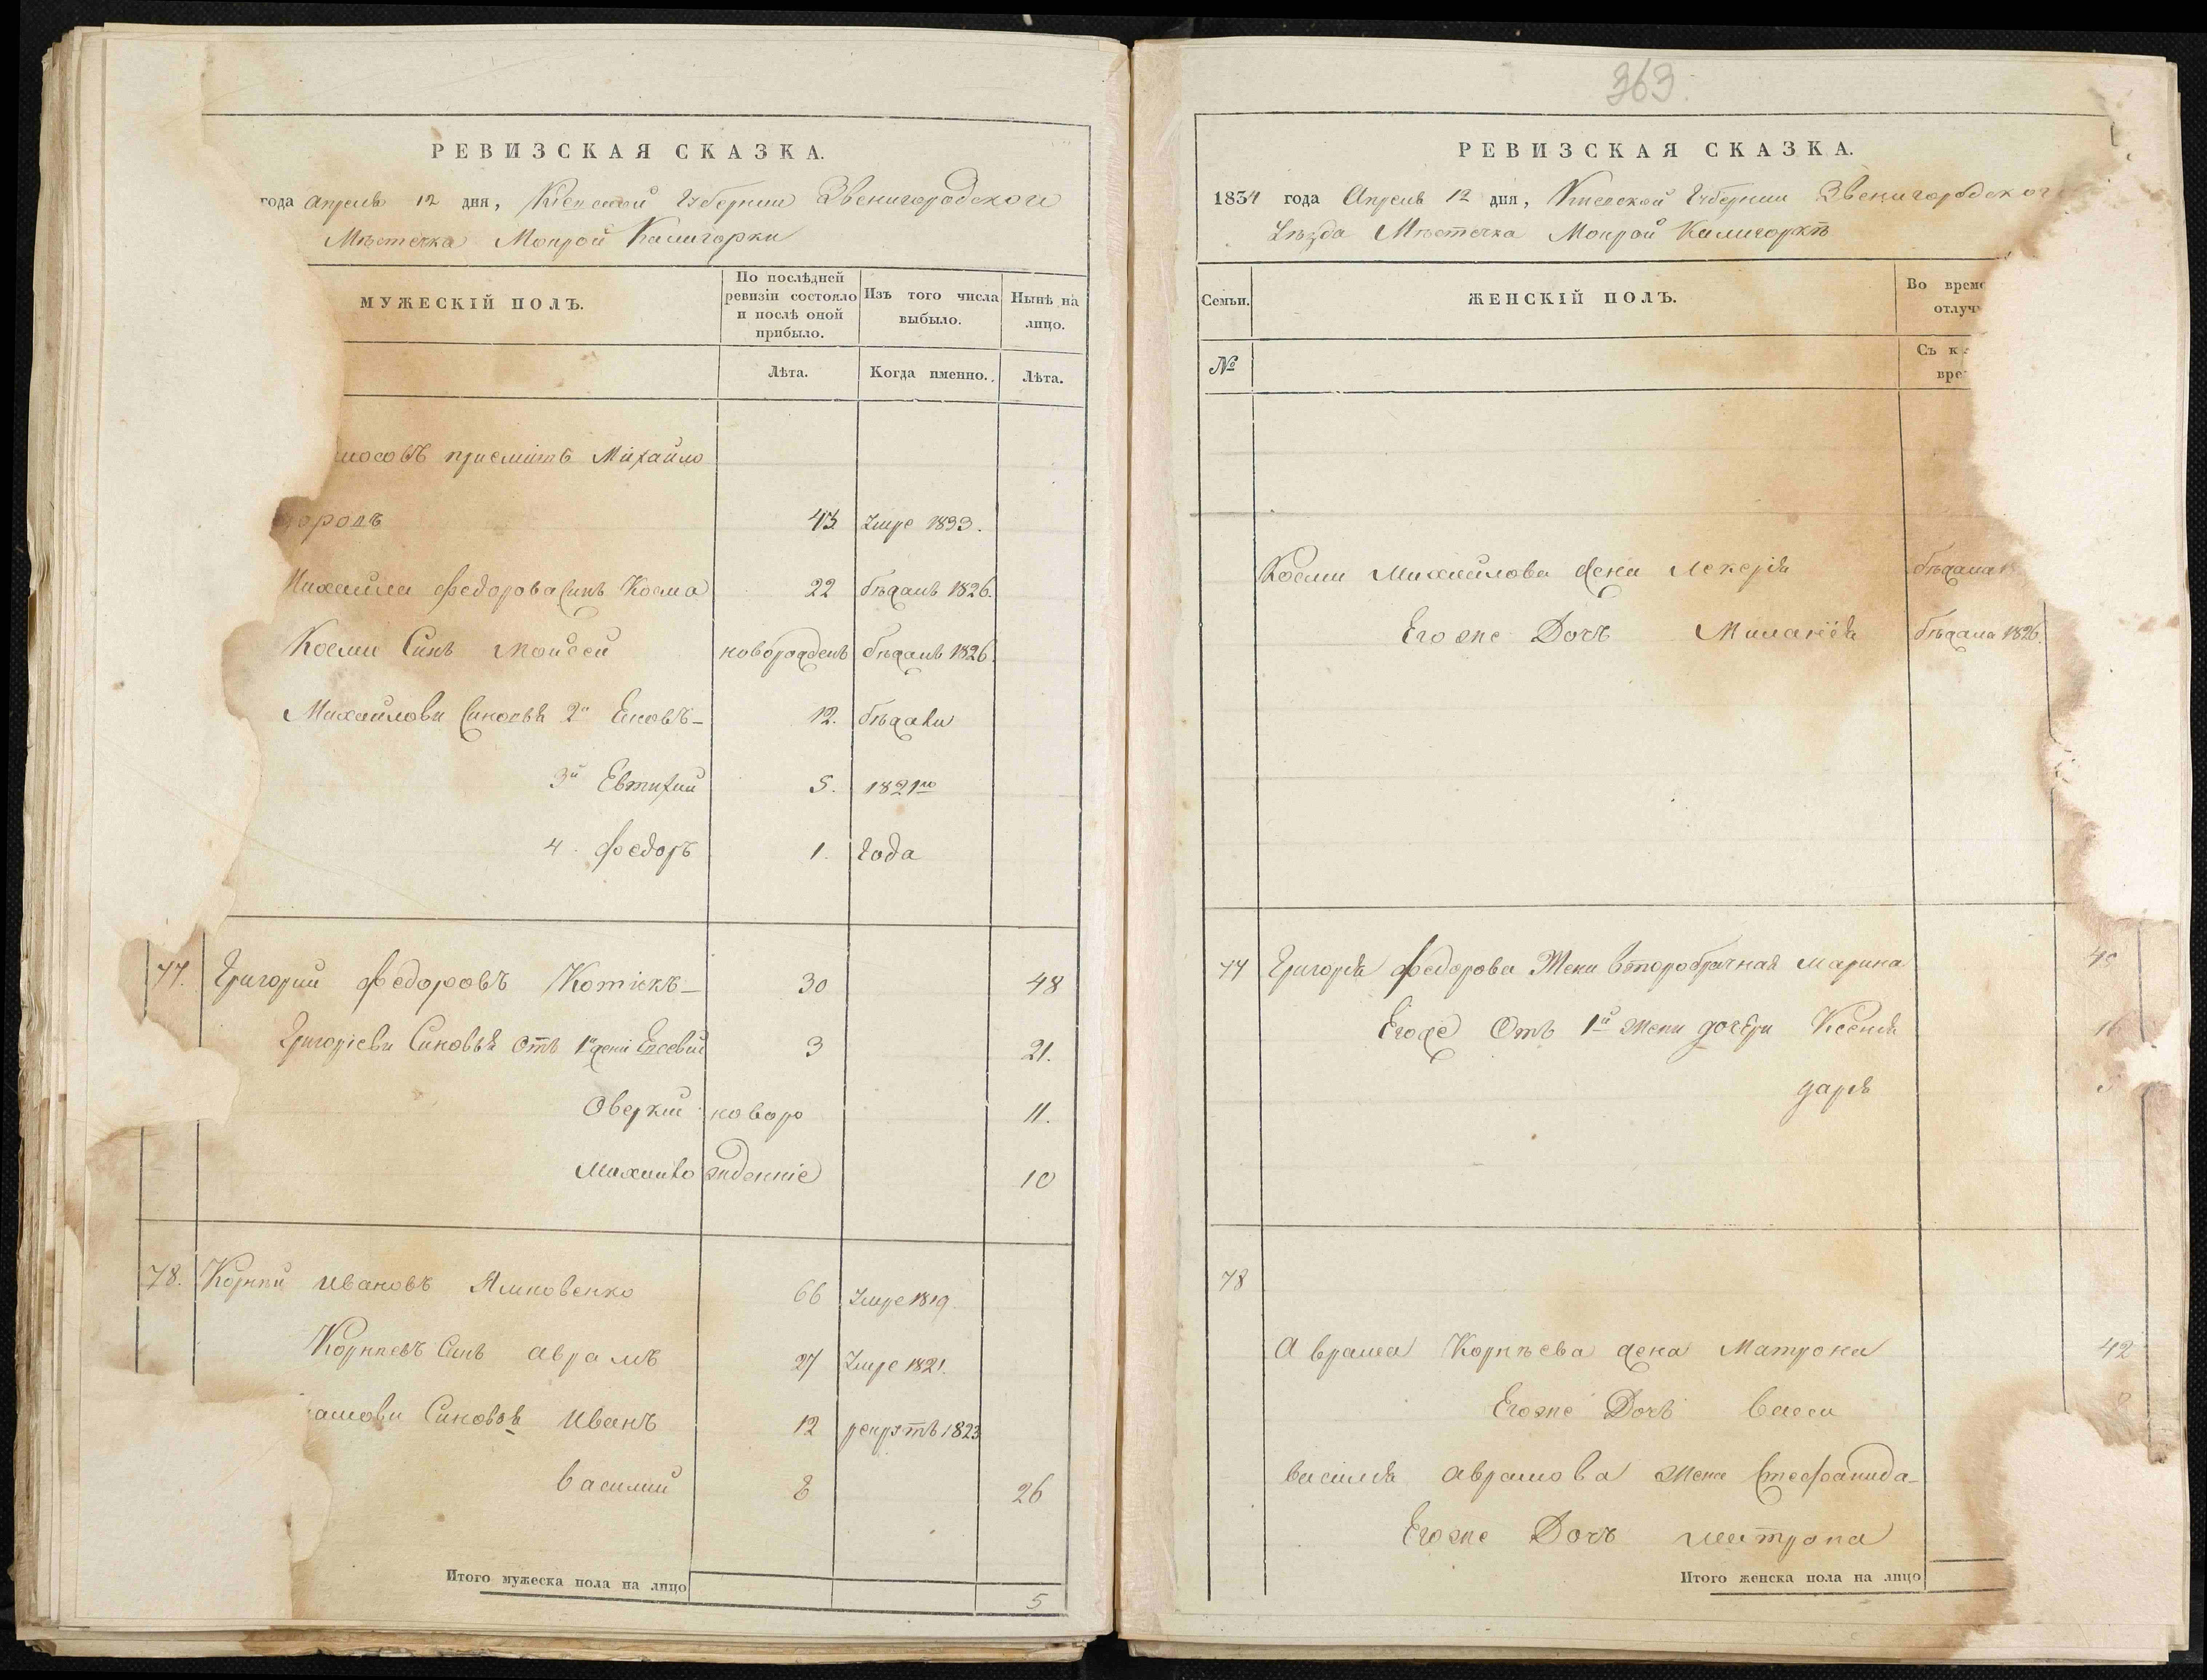 РЕВИЗСКАЯ СКАЗКА.
года Апреля 12 дня, Кіевской Губернии Звенигородского
Мѣстечка Мокрой Калигорки
МУЖЕСКІЙ ПОЛЪ.
По послѣдней ревизіи состояло и послѣ оной прибыло.
Изъ того числа выбыло.
Нынѣ на лицо.
Лѣта.
Когда именно.
Лѣта.
приемитъ Михайло
43 Умре 1833.
Михайла Федорова Синъ Косма 22 бѣжалъ 1826.
Косми Синъ Мойсей новорожденъ бѣжалъ 1826.
Михайлови Синовья 2й 12. бѣжали
3й Евтихий 5. 1821го
4. Федоръ 1. Года
77. Григорий Федоровъ Котікъ 30 48
Григоріеви Синовья Отъ 1й жени Евсевий 3 21.
Оверкий новоро 11.
Михайло жденніе 10
78. Корний Ивановъ 66 Умре 1819.
Корниевъ Синъ Аврамъ 27 Умре 1821.
амови Синовья Иванъ 12 рекрутъ 1823
Василий 8 26
Итого мужеска пола на лицо 5
363.
РЕВИЗСКАЯ СКАЗКА.
1834 года Апреля 12 дня, Киевской Губернии Звенигородског
Уѣзда Мѣстечка Мокрой Калигоркѣ
Семьи.
ЖЕНСКІЙ ПОЛЪ.
Во врем
отлуч
№
Съ к
вре
Косми Михайлова жена Лекерія бѣжала
Егоже Дочъ Миланія бѣжала 1826.
77 Григорія Федорова Жена второбрачная Марина
Егоже Отъ 1й жени дочери Ксенія
Дарія
78
Аврама Корнѣева жена Матрона 42
Егоже Дочъ Васса
Василія Аврамова жена Стефанида
Егоже Дочъ Матрона
Итого женска пола на лицо